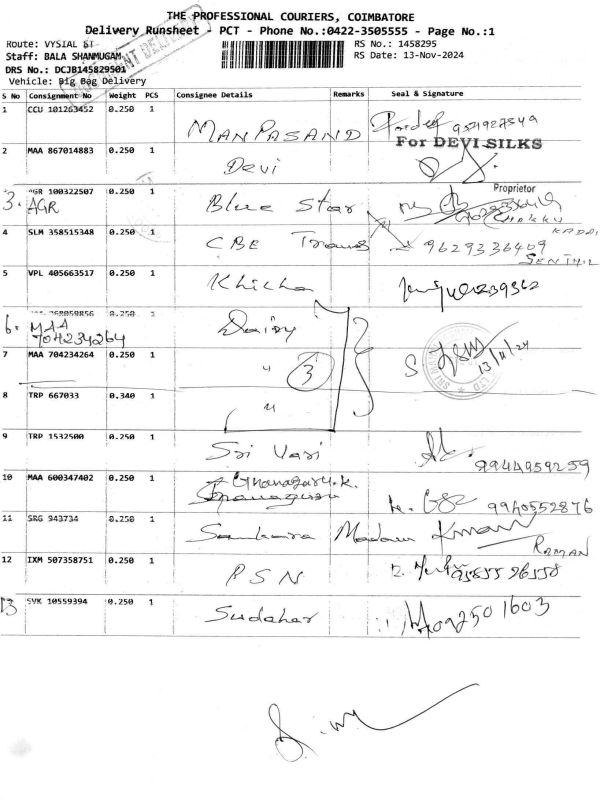 THE PROFESSIONAL COURIERS, COIMBATORE
Delivery Runsheet - PCT - Phone No.:0422-3505555 - Page No.:1
Route: VYSIAL ST
RS No.: 1458295
Staff: BALA SHANMUGAM
RS Date: 13-Nov-2024
DRS No.: DCJB145829501
Vehicle: Big Bag Delivery
S No Consignment No Weight PCS Consignee Details Remarks Seal & Signature
1 CCU 101263452 0.250 1 MANPASAND
For DEVI SILKS
2 MAA 867014883 0.250 1 Devi
Proprietor
3. AGR 100322507 0.250 1 Blue Star
AGR
4 SLM 358515348 0.250 1 CBE Trans 9629336409
SENTHIL
5 VPL 405663517 0.250 1 Khicha
6. 0.250 1 Dairy
MAA
704234264
7 MAA 704234264 0.250 1 " 3 S
13/11/24
8 TRP 667033 0.340 1 "
9 TRP 1532500 0.250 1 Sri Vari
9944959259
10 MAA 600347402 0.250 1 Gnanaguru.K.
9940552876
11 SRG 943734 0.250 1 Sankara Madam
RAMAN
12 IXM 507358751 0.250 1 PSN
13 SVK 10559394 0.250 1 Sudahar